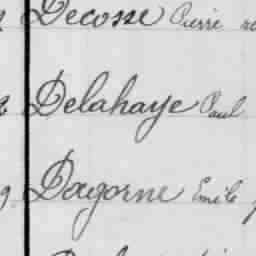 Decosse Pierre
Delahaye Paul
Dagorne Emile